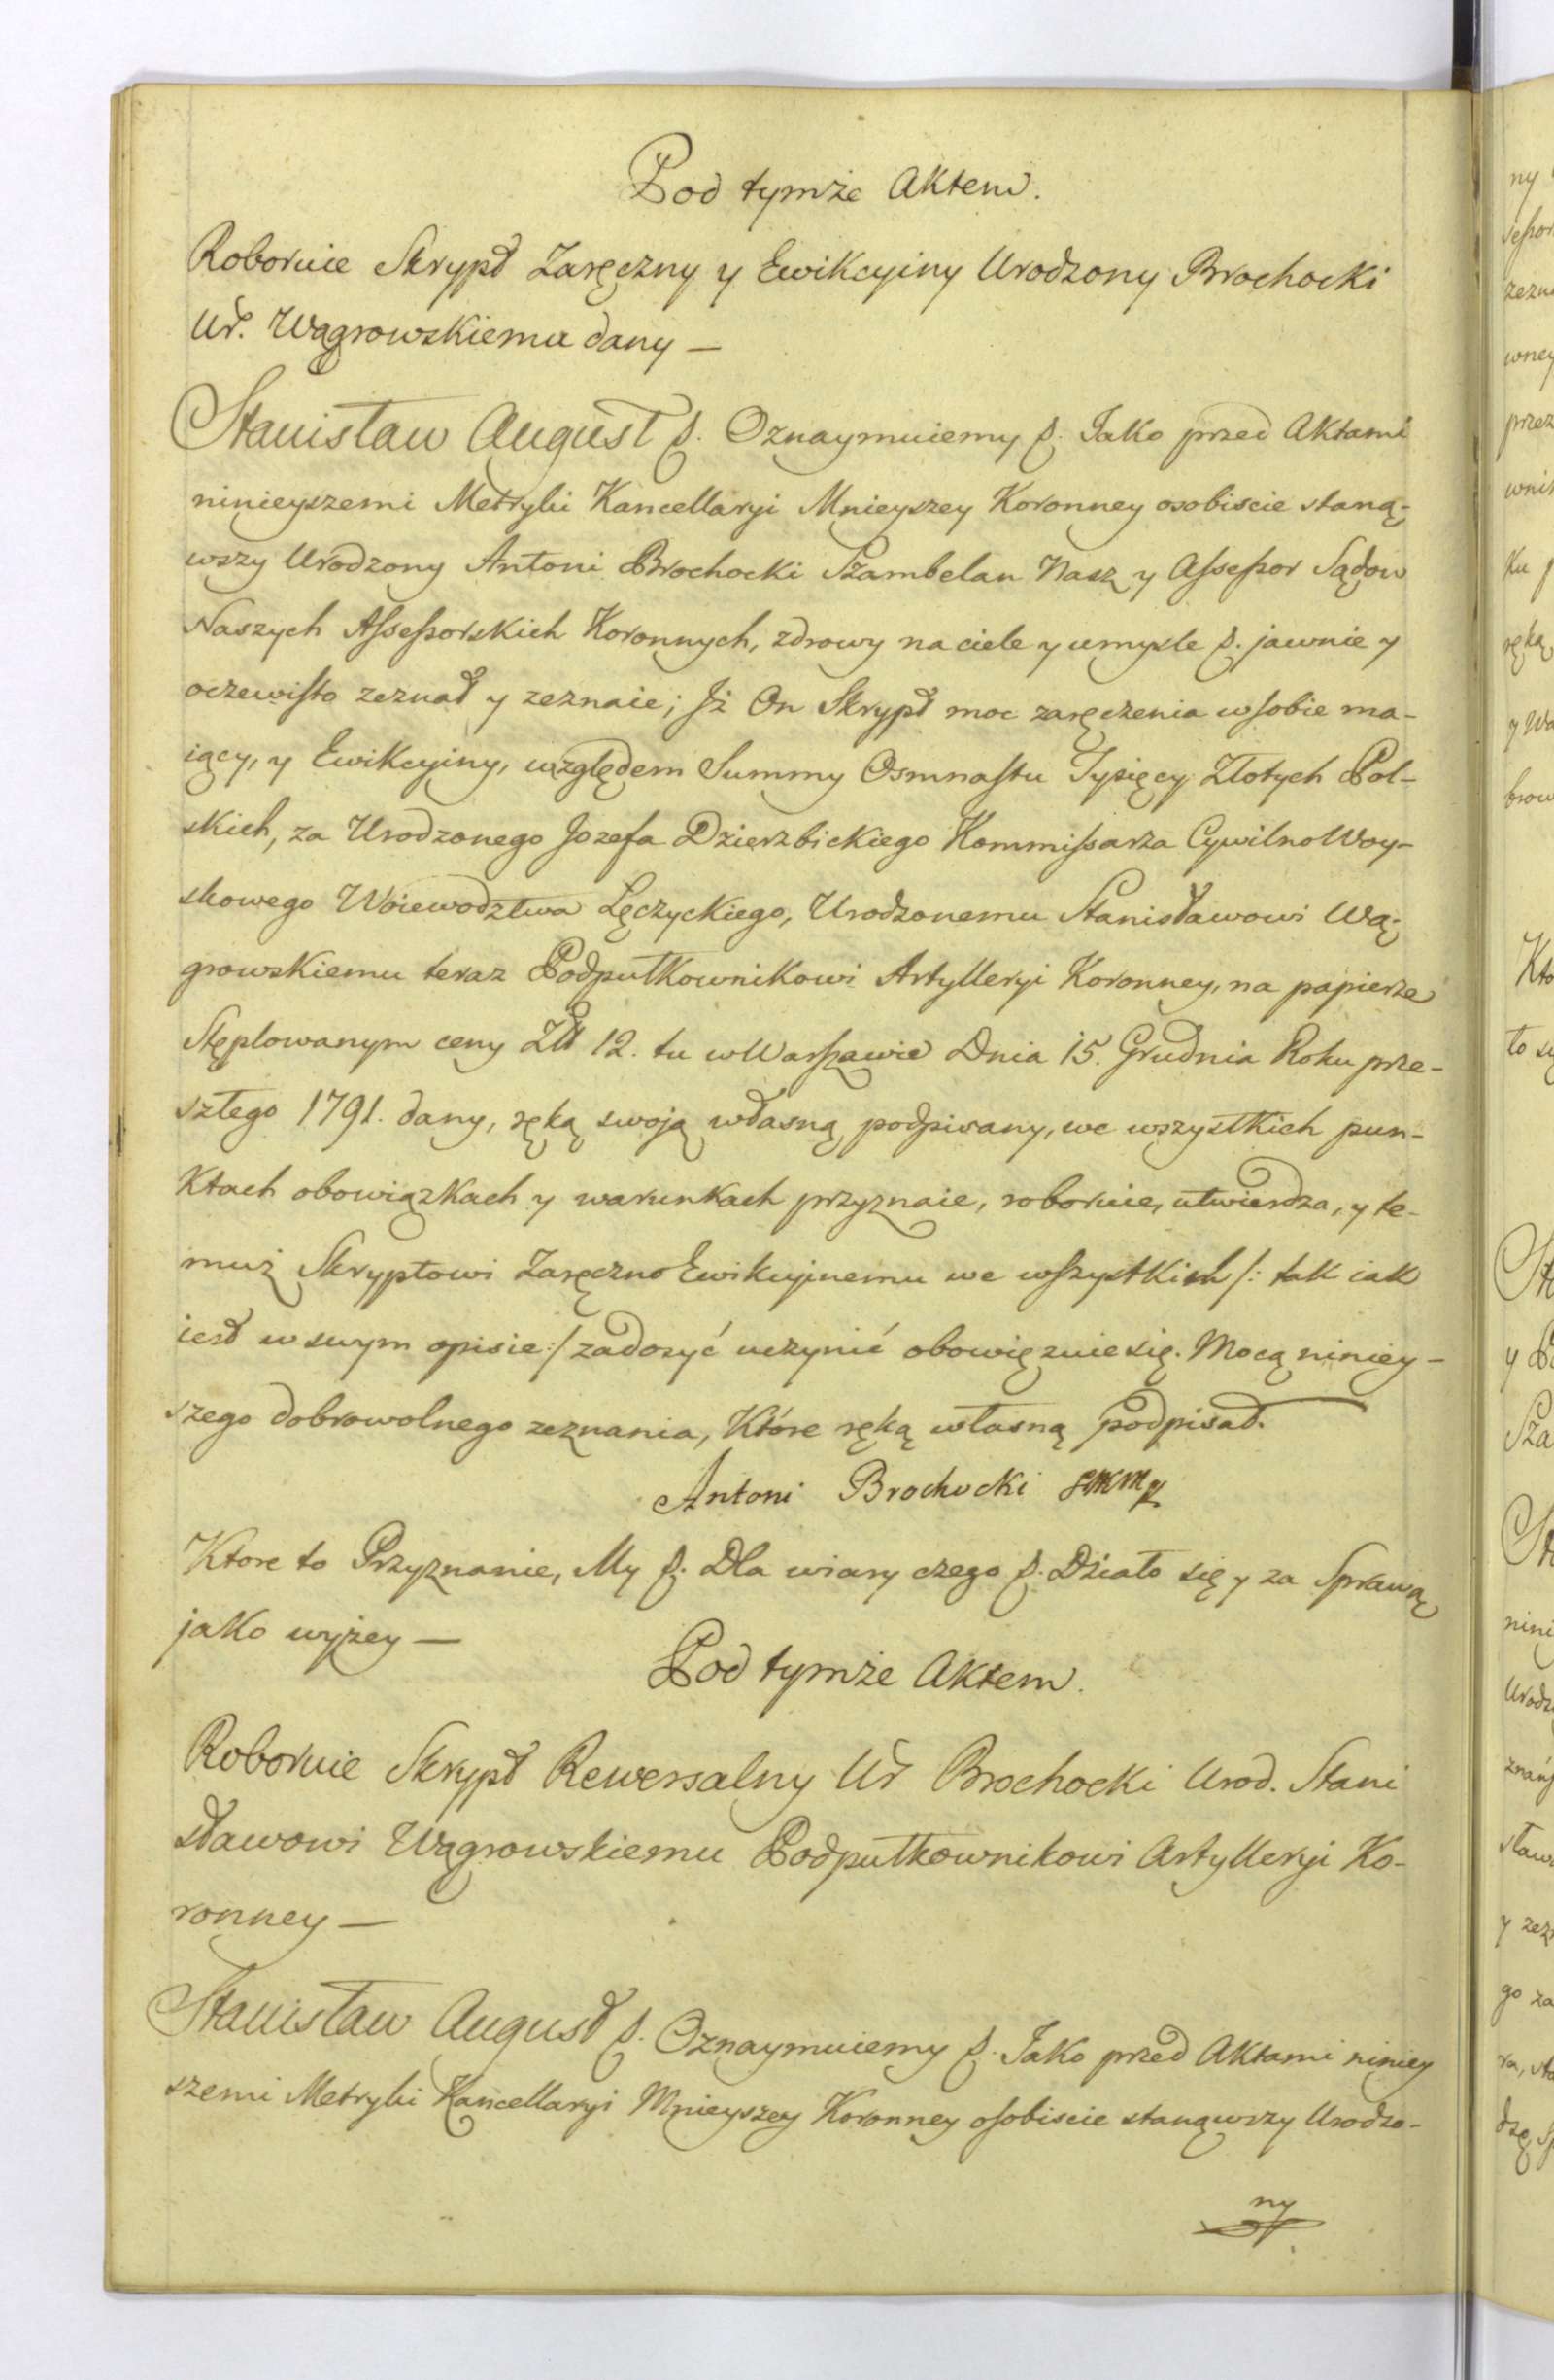 Pod tymże Aktem.
Roboruie Skrypt Zaręczny y Ewikcyiny Urodzony Brochocki
Ur. Wągrowskiemu dany —
Stanisław August &. Oznaymuiemy &. Jako przed Aktami
ninieyszemi Metryki Kancellaryi Mnieyszey Koronney osobiscie staną-
wszy Urodzony Antoni Brochocki Szambelan Nasz y Assessor Sądow
Naszych Assessorskich Koronnych, zdrowy na ciele y umysle &. jawnie y
oczewisto zeznał y zeznaie; Jż On Skrypt moc zaręczenia w sobie ma-
iący, y Ewikcyiny, względem Summy Osmnastu Tysięcy Złotych Pol-
skich, za Urodzonego Jozefa Dzierzbickiego Kommissarza Cywilno Woy-
skowego Woiewodztwa Łęczyckiego, Urodzonemu Stanisławowi Wą-
growskiemu teraz Podpułkownikowi Artylleryi Koronney, na papierze
Stęplowanym ceny Złł 12. tu w Warszawie Dnia 15. Grudnia Roku prze-
szłego 1791. dany, ręką swoją własną podpisany, we wszystkich pun-
Ktach obowiązkach y warunkach przyznaie, roboruie, utwierdza, y te-
muż Skryptowi Zaręczno Ewikcyjnemu we wszystkich /: tak iak
iest w swym opisie :/ zadosyć uczynić obowięzuie się. Mocą niniey-
szego dobrowolnego zeznania, Które ręką własną podpisał.
Antoni Brochocki
Ktore to Przyznanie, My &. Dla wiary czego &. Działo się y za Sprawą
jako wyżey —
Pod tymże Aktem.
Roboruie Skrypt Rewersalny Ur Brochocki Urod. Stani
sławowi Wągrowskiemu Podpułkownikowi Artylleryi Ko-
ronney —
Stanisław August &. Oznaymuiemy &. Jako przed Aktami niniey
szemi Metryki Kancellaryi Mnieyszey Koronney osobiscie stanąwszy Urodzo-
ny